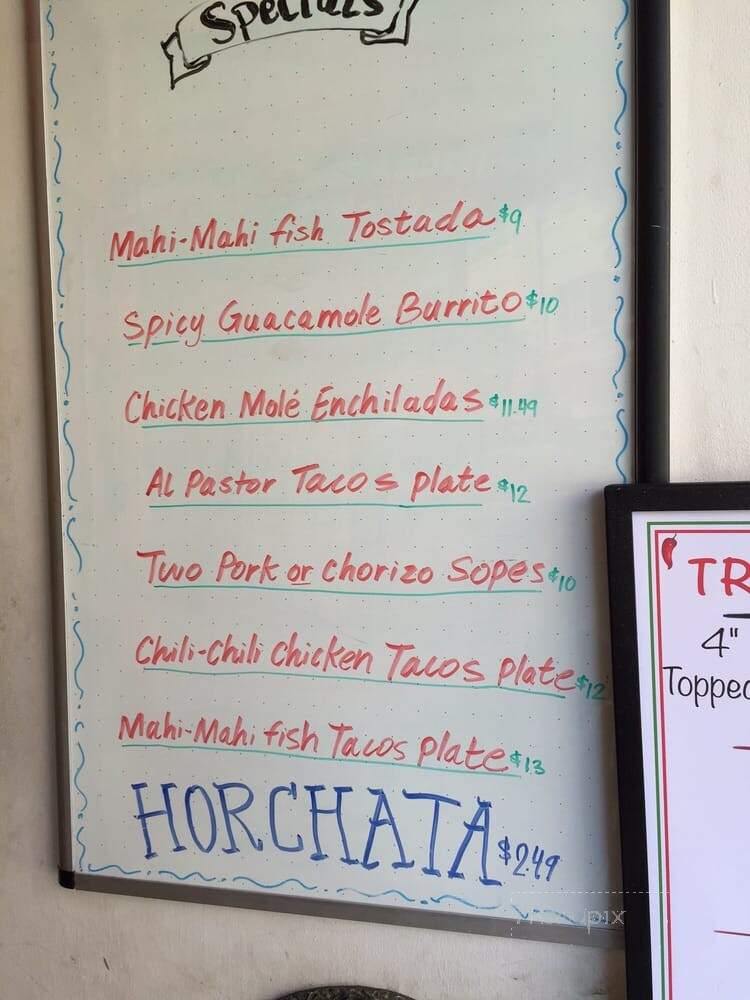 Specials
Mahi-Mahi fish Tostada $9
Spicy Guacamole Burrito $10
Chicken Molé Enchiladas $11.49
Al Pastor Tacos plate $12
Two Pork or chorizo Sopes $10
Chili-Chili Chicken Tacos Plate $12
Mahi-Mahi fish Tacos Plate $13
HORCHATA $2.49
4"